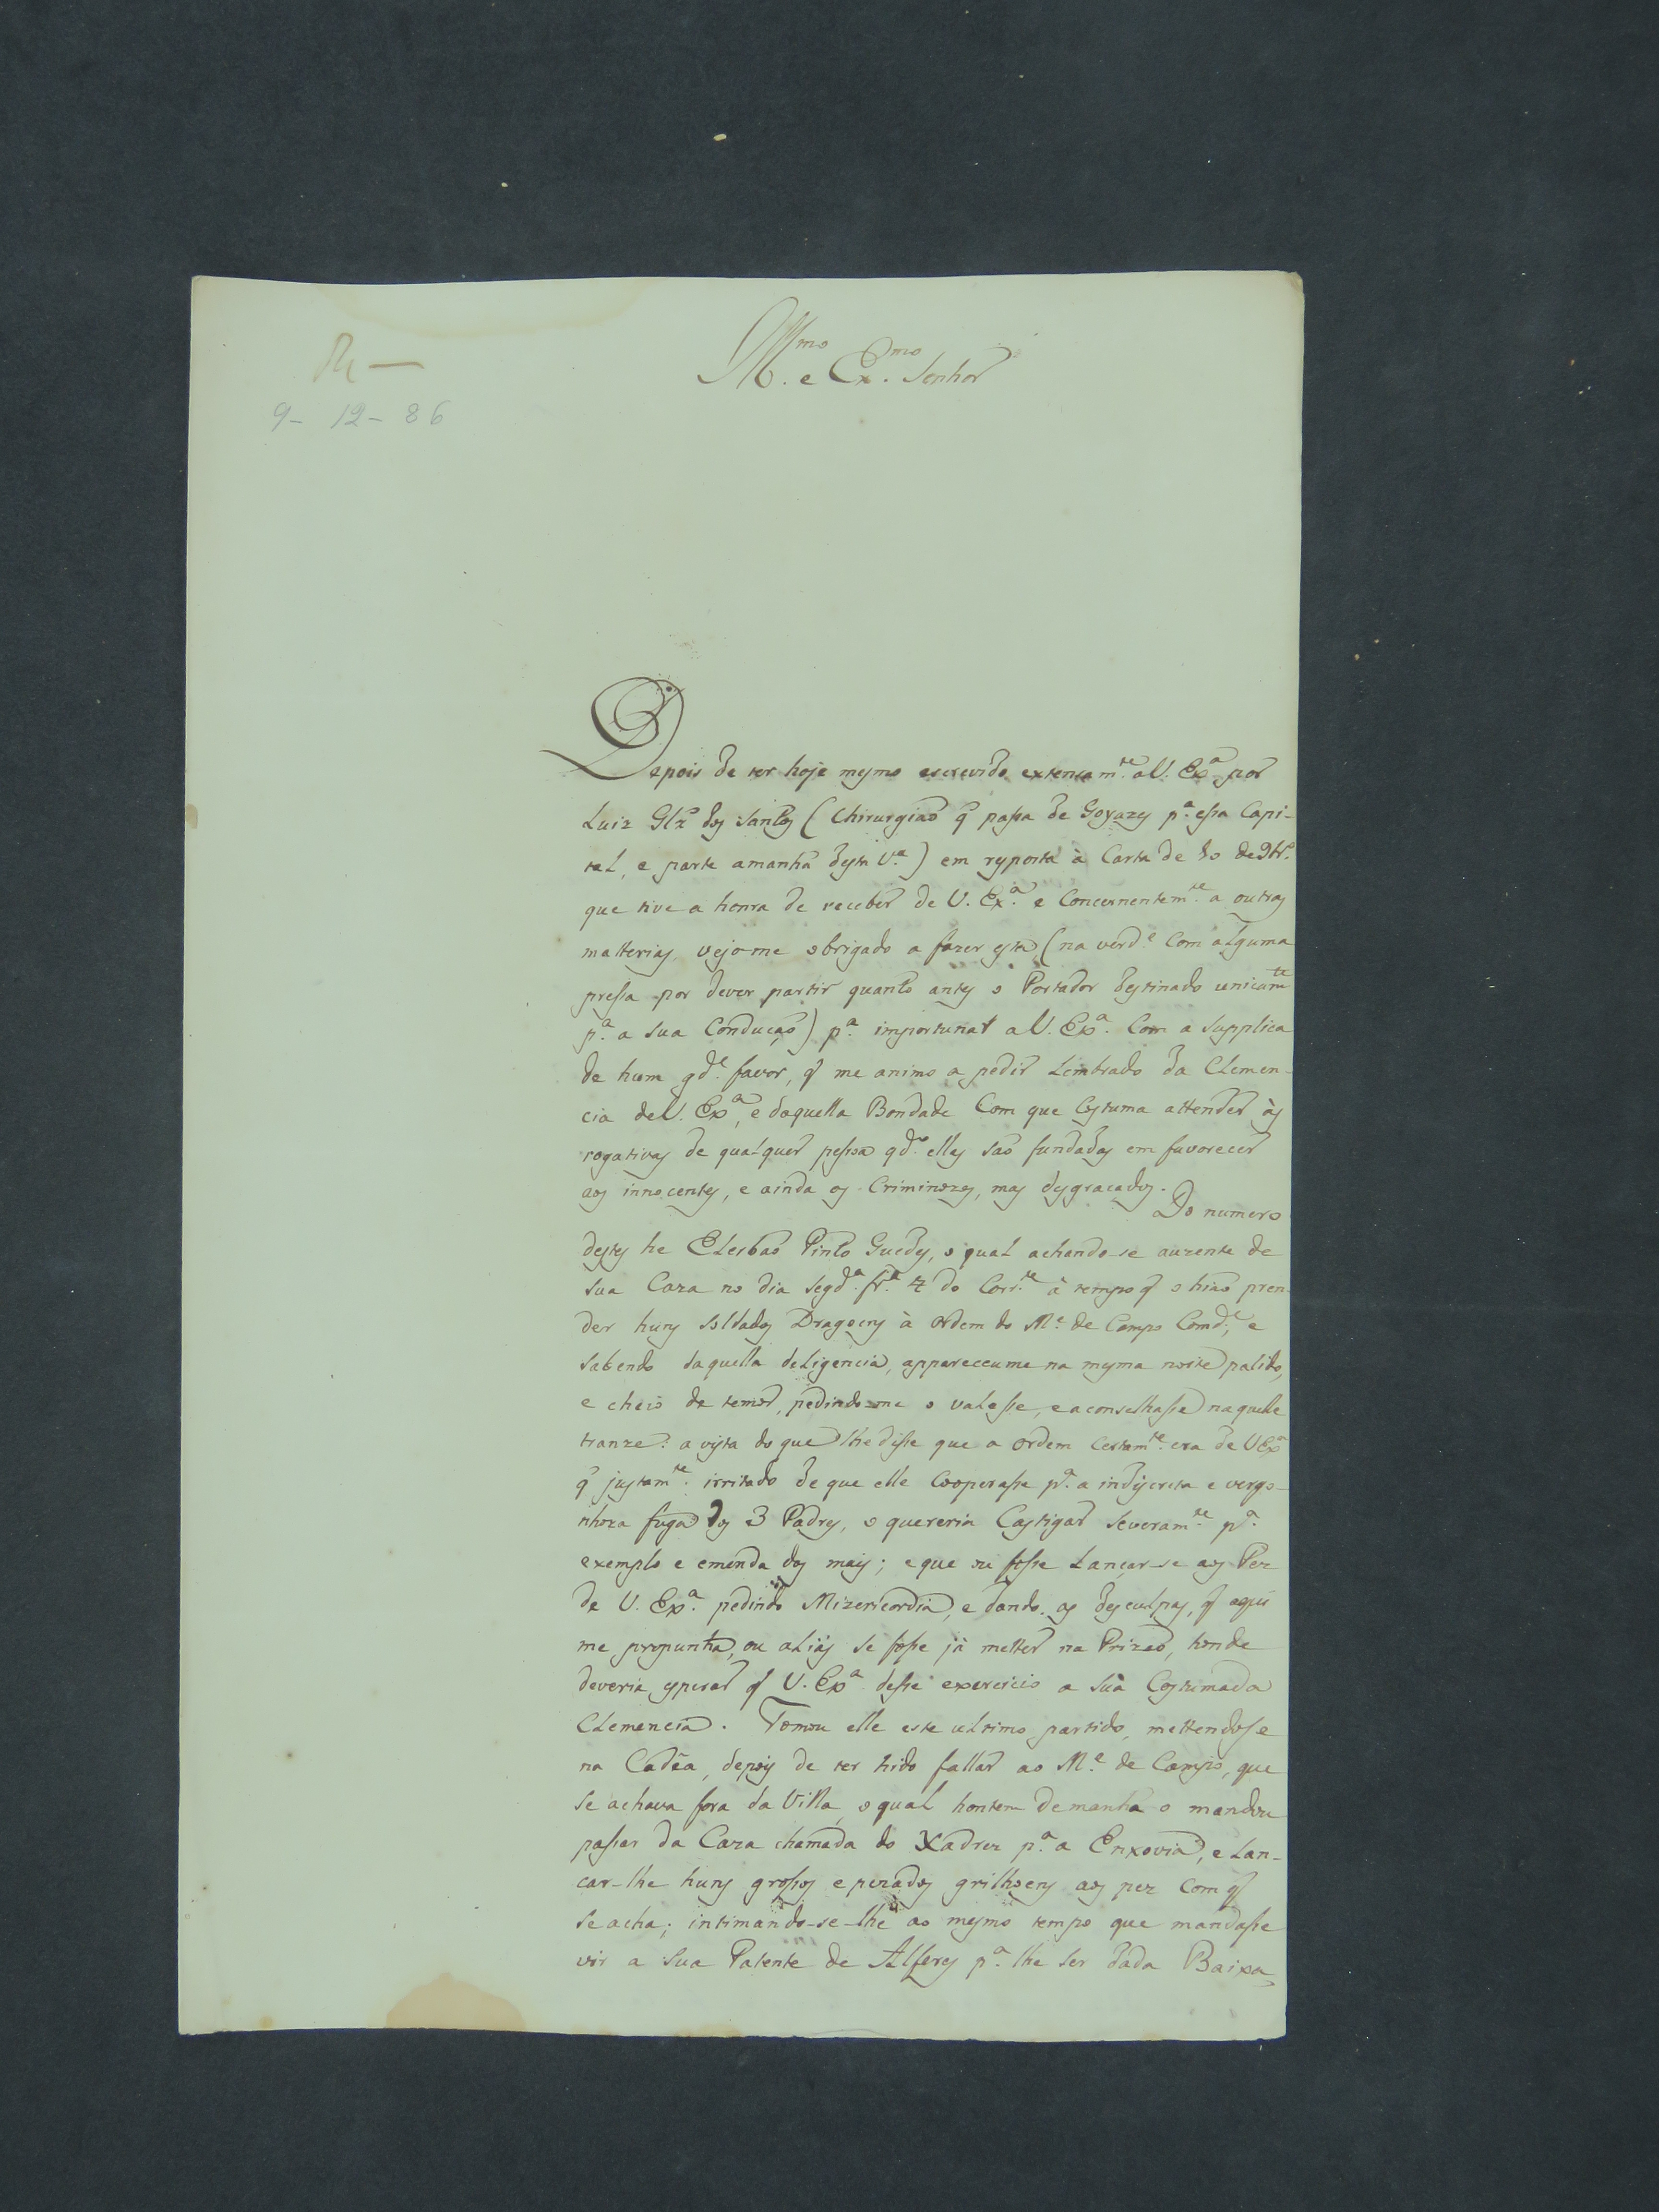 R. —
9- 12- 86
Ill.mo e Ex.mo Senhor
Depois de ter hoje mesmo escrevido extensam.te a V. Ex.a por
Luiz Glz dos Santos (Chirurgiaõ q̃ passa de Goyazes p.a essa Capi-
tal, e parte amanhã desta V.a) em resposta à Carta de
que tive a honra de receber de V. Ex.a e Concernentem.te a outras
matterias vejo-me obrigado a fazer esta (na verd.e com alguma
pressa por dever partir quanto antes o Portador destinado unicam.te
p.a a sua Conducçaõ) p.a importunar a V. Ex.a Com a supplica
de hum gd.e favor, q̃ me animo a pedir Lembrado da Clemen-
cia de V. Ex.a, e daquella Bondade Com que Costuma attender às
rogativas de qualquer pessoa qd.o ellas saõ fundadas em favorecer
aos innocentes, e ainda os Criminozos, mas desgraçados.
Do numero
destes he Elesbaõ Pinto Guedes, o qual achando-se auzente de
sua Caza no dia segd.a fr.a 4 do Corr.te à tempo q̃ o hiaõ pren-
der huns soldados Dragoens à Ordem do M.e de Campo Comd.e, e
sabendo daquella deligencia, appareceume na mesma noite palido,
e cheio de temor, pedindo-me o valesse, e aconselhasse naquelle
tranze: a vista do que lhe disse que a Ordem Certam.te era de V Ex.a
q̃ justam.te irritado de que elle Cooperasse p.a a indiscreta e vergo-
nhoza fuga dos 3 Padres, o quereria Castigar severam.te p.a
exemplo e emenda dos mais; e que se fosse Lançar-se aos Pez
de V. Ex.a pedindo Mizericordia, e dando as desculpas, q̃ aqui
me propunha, ou aliás se fosse já metter na Prizaõ, honde
deveria esperar q̃ V. Ex.a desse exercicio a sua Costumada
Clemencia. Tomou elle este ultimo partido, mettendose
na Cadêa, depois de ter hido fallar ao M.e de Campo, que
se achava fora da Villa, o qual hontem de manhã o mandou
passar da Caza chamada do Xadrez p.a a Enxovia, e Lan-
çar-lhe huns grossos e pezados grilhoens aos pez Com q̃
se acha; intimando-se-lhe ao mesmo tempo que mandasse
vir a sua Patente de Alferes p.a lhe ser dada Baixa